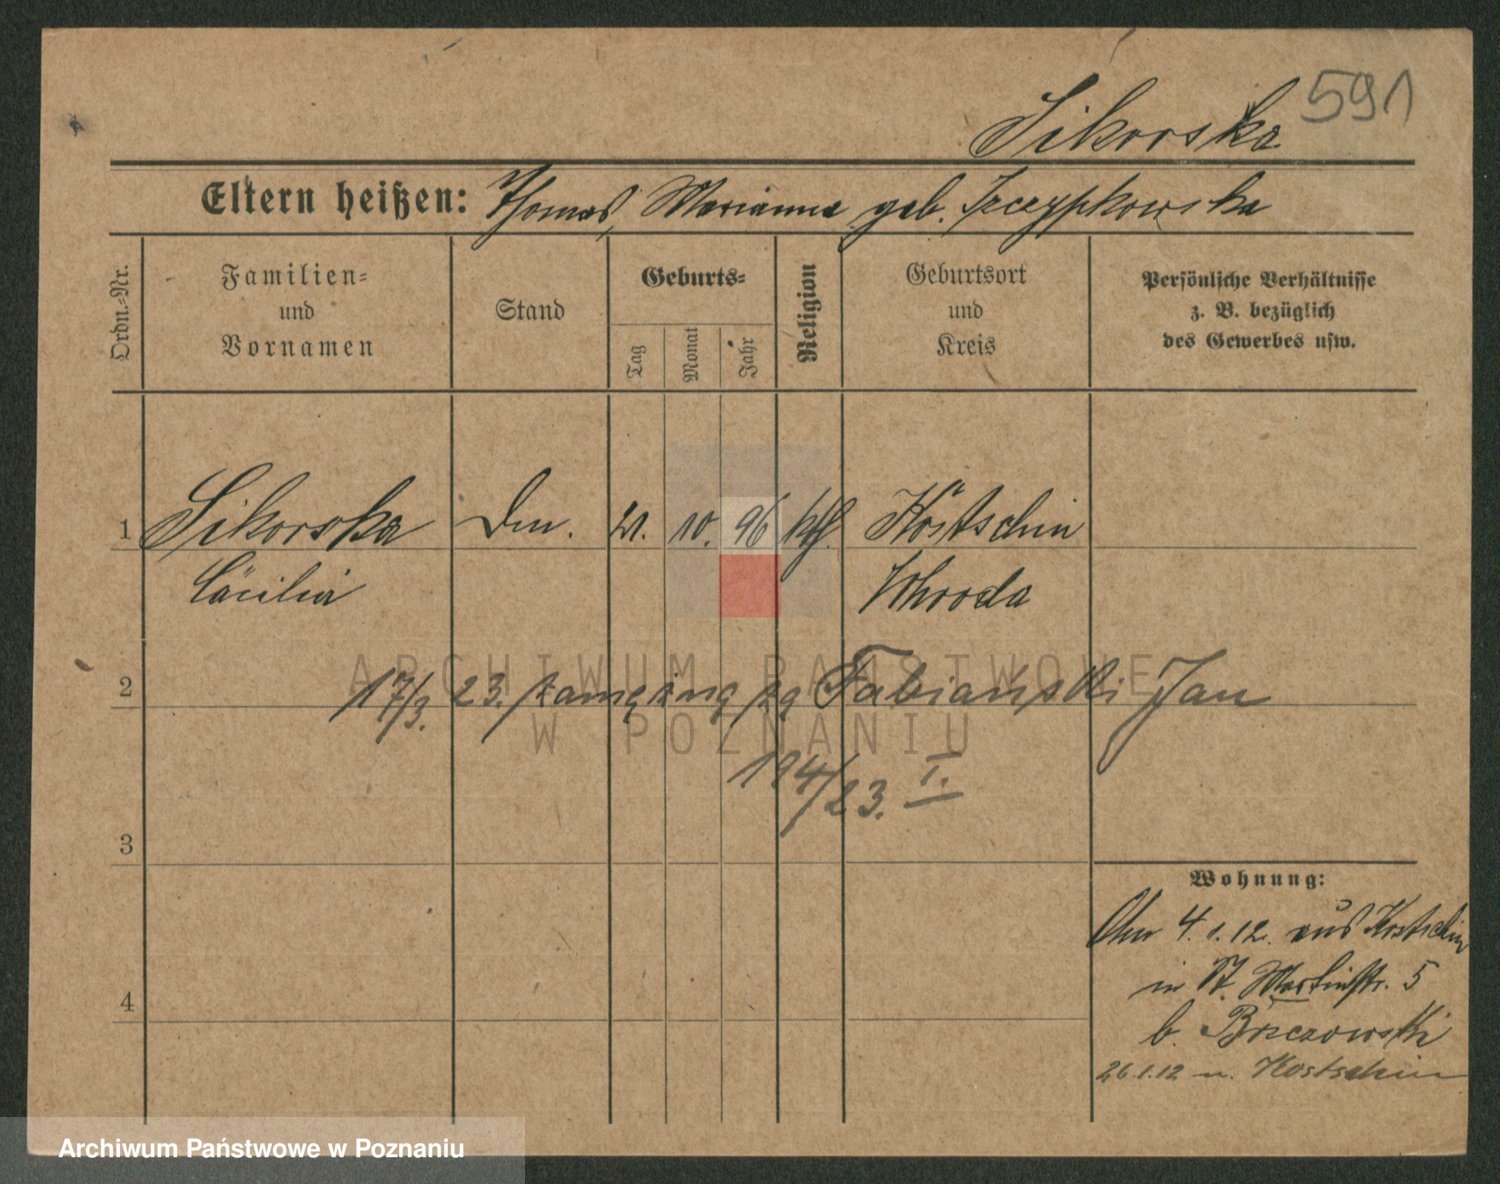 591
Sikorska
Eltern heißen: Thomas, Marianna geb. Szczypkowska
Ordn.-Nr.
Familien-
und
Vornamen
Stand
Geburts-
Tag
Monat
Jahr
Religion
Geburtsort
und
Kreis
Persönliche Verhältnisse
z. B. bezüglich
des Gewerbes usw.
1 Sikorska 21. 10. 96 kth. Kostschin
Cäcilia Schroda
2 17/3. 23. zamężną za Fabiański Jan
194/23. I.
3
Wohnung:
4. 1. 12. aus Kostschin
in St. Martinstr. 5
b. Brzezowski
4
26.1.12 n. Kostschin
ARCHIWUM PAŃSTWOWE
W POZNANIU
Archiwum Państwowe w Poznaniu